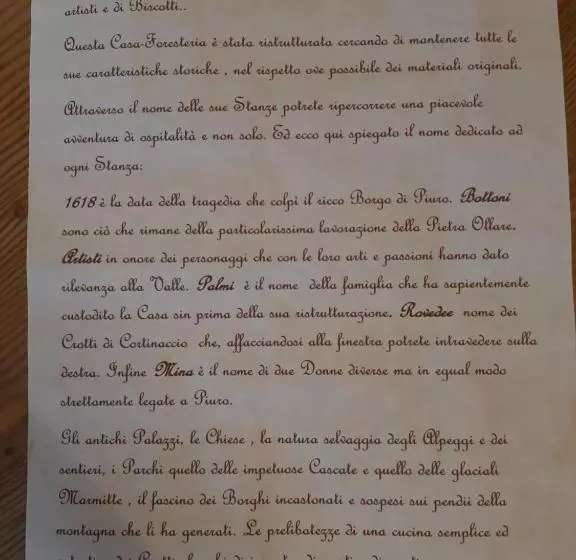 artisti e di Biscotti..
Questa Casa-Foresteria è stata ristrutturata cercando di mantenere tutte le
sue caratteristiche storiche , nel rispetto ove possibile dei materiali originali.
Attraverso il nome delle sue Stanze potrete ripercorrere una piacevole
avventura di ospitalità e non solo. Ed ecco qui spiegato il nome dedicato ad
ogni Stanza:
1618 è la data della tragedia che colpì il ricco Borgo di Piuro. Bottoni
sono ciò che rimane della particolarissima lavorazione della Pietra Ollare.
Artisti in onore dei personaggi che con le loro arti e passioni hanno dato
rilevanza alla Valle. Palmi è il nome della famiglia che ha sapientemente
custodito la Casa sin prima della sua ristrutturazione. Rovedee nome dei
Crotti di Cortinaccio che, affacciandosi alla finestra potrete intravedere sulla
destra. Infine Mina è il nome di due Donne diverse ma in egual modo
strettamente legate a Piuro.
Gli antichi Palazzi, le Chiese , la natura selvaggia degli Alpeggi e dei
sentieri, i Parchi quello delle impetuose Cascate e quello delle glaciali
Marmitte , il fascino dei Borghi incastonati e sospesi sui pendii della
montagna che li ha generati. Le prelibatezze di una cucina semplice ed